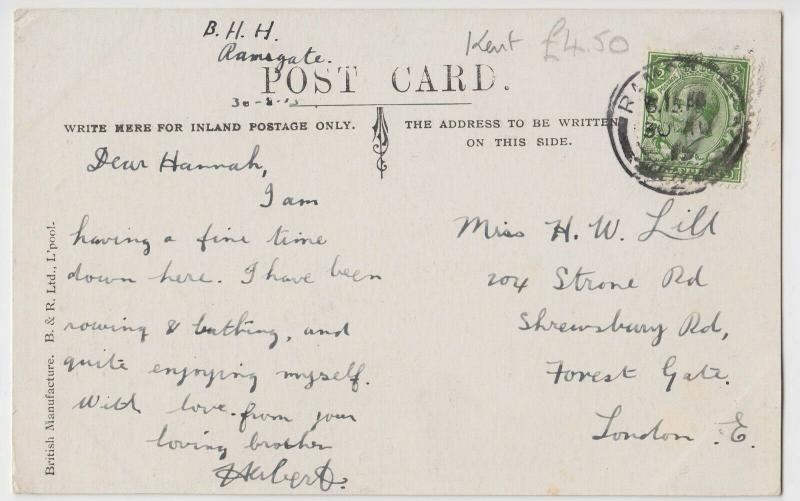 B. H. H.
Ramsgate.
Kent £4.50
POST CARD.
30-8-15
WRITE HERE FOR INLAND POSTAGE ONLY.
THE ADDRESS TO BE WRITTEN
ON THIS SIDE.
Dear Hannah,
I am
having a fine time
down here. I have been
rowing & bathing, and
quite enjoying myself.
With love from your
loving brother
Herbert.
Miss H. W. Lill
204 Strone Rd
Shrewsbury Rd,
Forest Gate.
London. E.
British Manufacture. B. & R. Ltd., L'pool.
30 AU
15